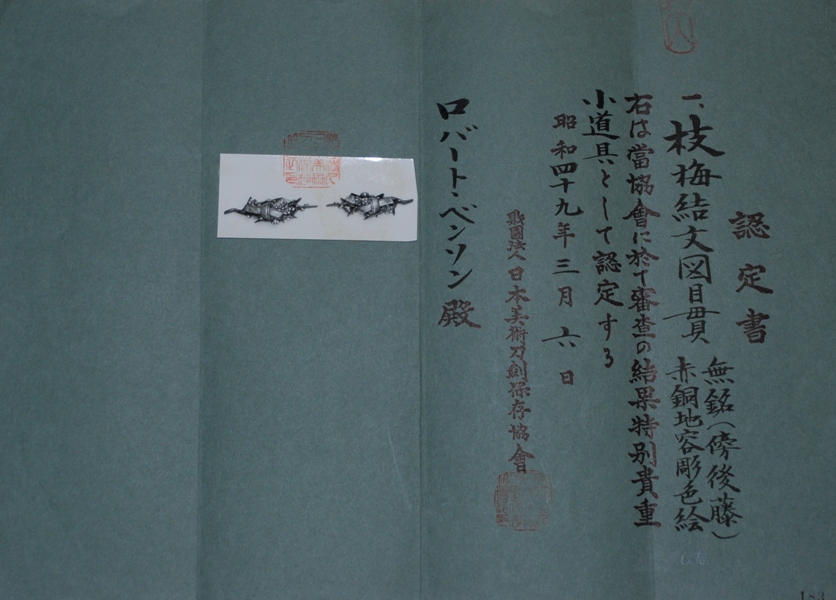 認定書
一、枝梅結文図目貫 無銘(傍後藤)
赤銅地容彫色絵
右は當協會に於て審査の結果特別貴重
小道具として認定する
昭和四十九年三月六日
財團法人日本美術刀劍保存協會
ロバート・ベンソン殿
183